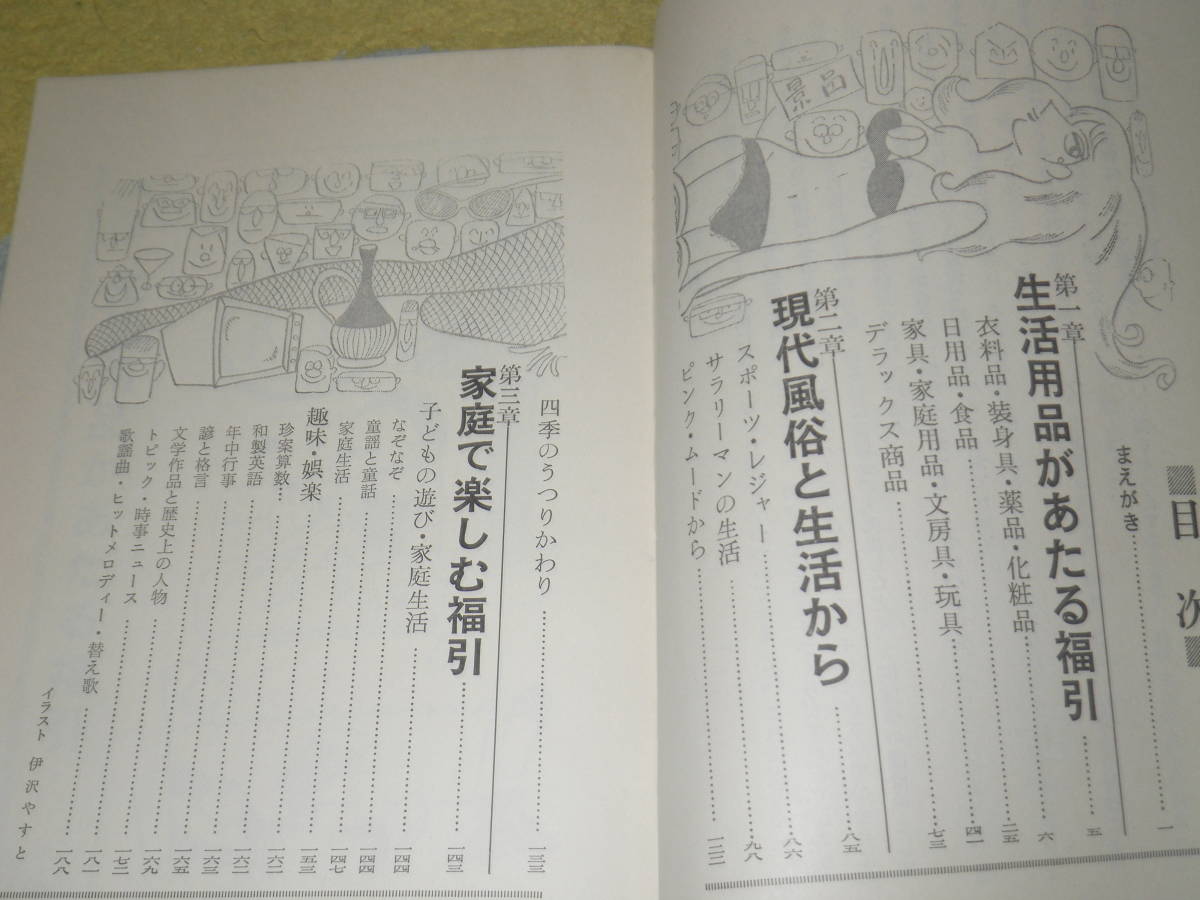 目次
まえがき……………一
第一章
生活用品があたる福引……五
衣料品・装身具・薬品・化粧品……六
日用品・食品……二五
家具・家庭用品・文房具・玩具……四一
デラックス商品……七三
第二章
現代風俗と生活から……八五
スポーツ・レジャー……八六
サラリーマンの生活……九八
ピンク・ムードから……一二二
景品
四季のうつりかわり……一三三
第三章
家庭で楽しむ福引……一四三
子どもの遊び・家庭生活……一四四
なぞなぞ……一四四
童謡と童話……一四七
家庭生活……一五三
趣味・娯楽……一六二
珍案算数……一六二
和製英語……一六三
年中行事……一六五
諺と格言……一六九
文学作品と歴史上の人物……一七二
トピック・時事ニュース……一八一
歌謡曲・ヒットメロディー・替え歌……一八八
イラスト 伊沢やすと